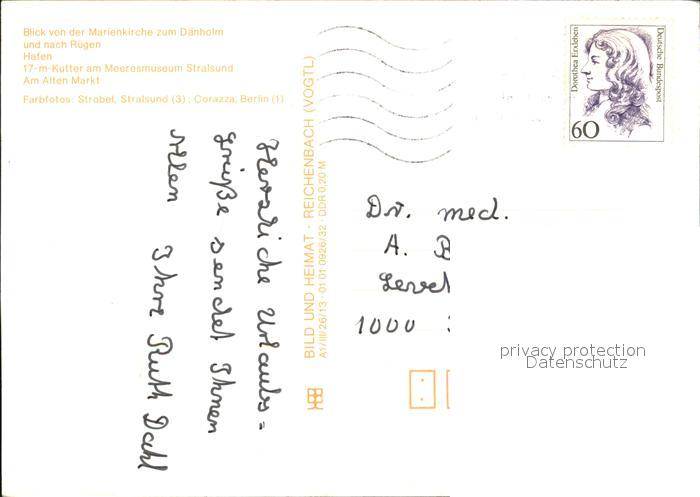 Blick von der Marienkirche zum Dänholm
und nach Rügen
Hafen
17-m-Kutter am Meeresmuseum Stralsund
Am Alten Markt
Farbfotos: Strobel, Stralsund (3); Corazza, Berlin (1)
Herzliche Urlaubs=
grüße sendet Ihnen
Allen Ihre Ruth Dahl
BILD UND HEIMAT · REICHENBACH (VOGTL)
A1/III/26/13 · 01 01 0926/32 · DDR 0,20 M
Dorothea Erxleben
Deutsche Bundespost
60
Dr. med.
A. B
1000
privacy protection
Datenschutz